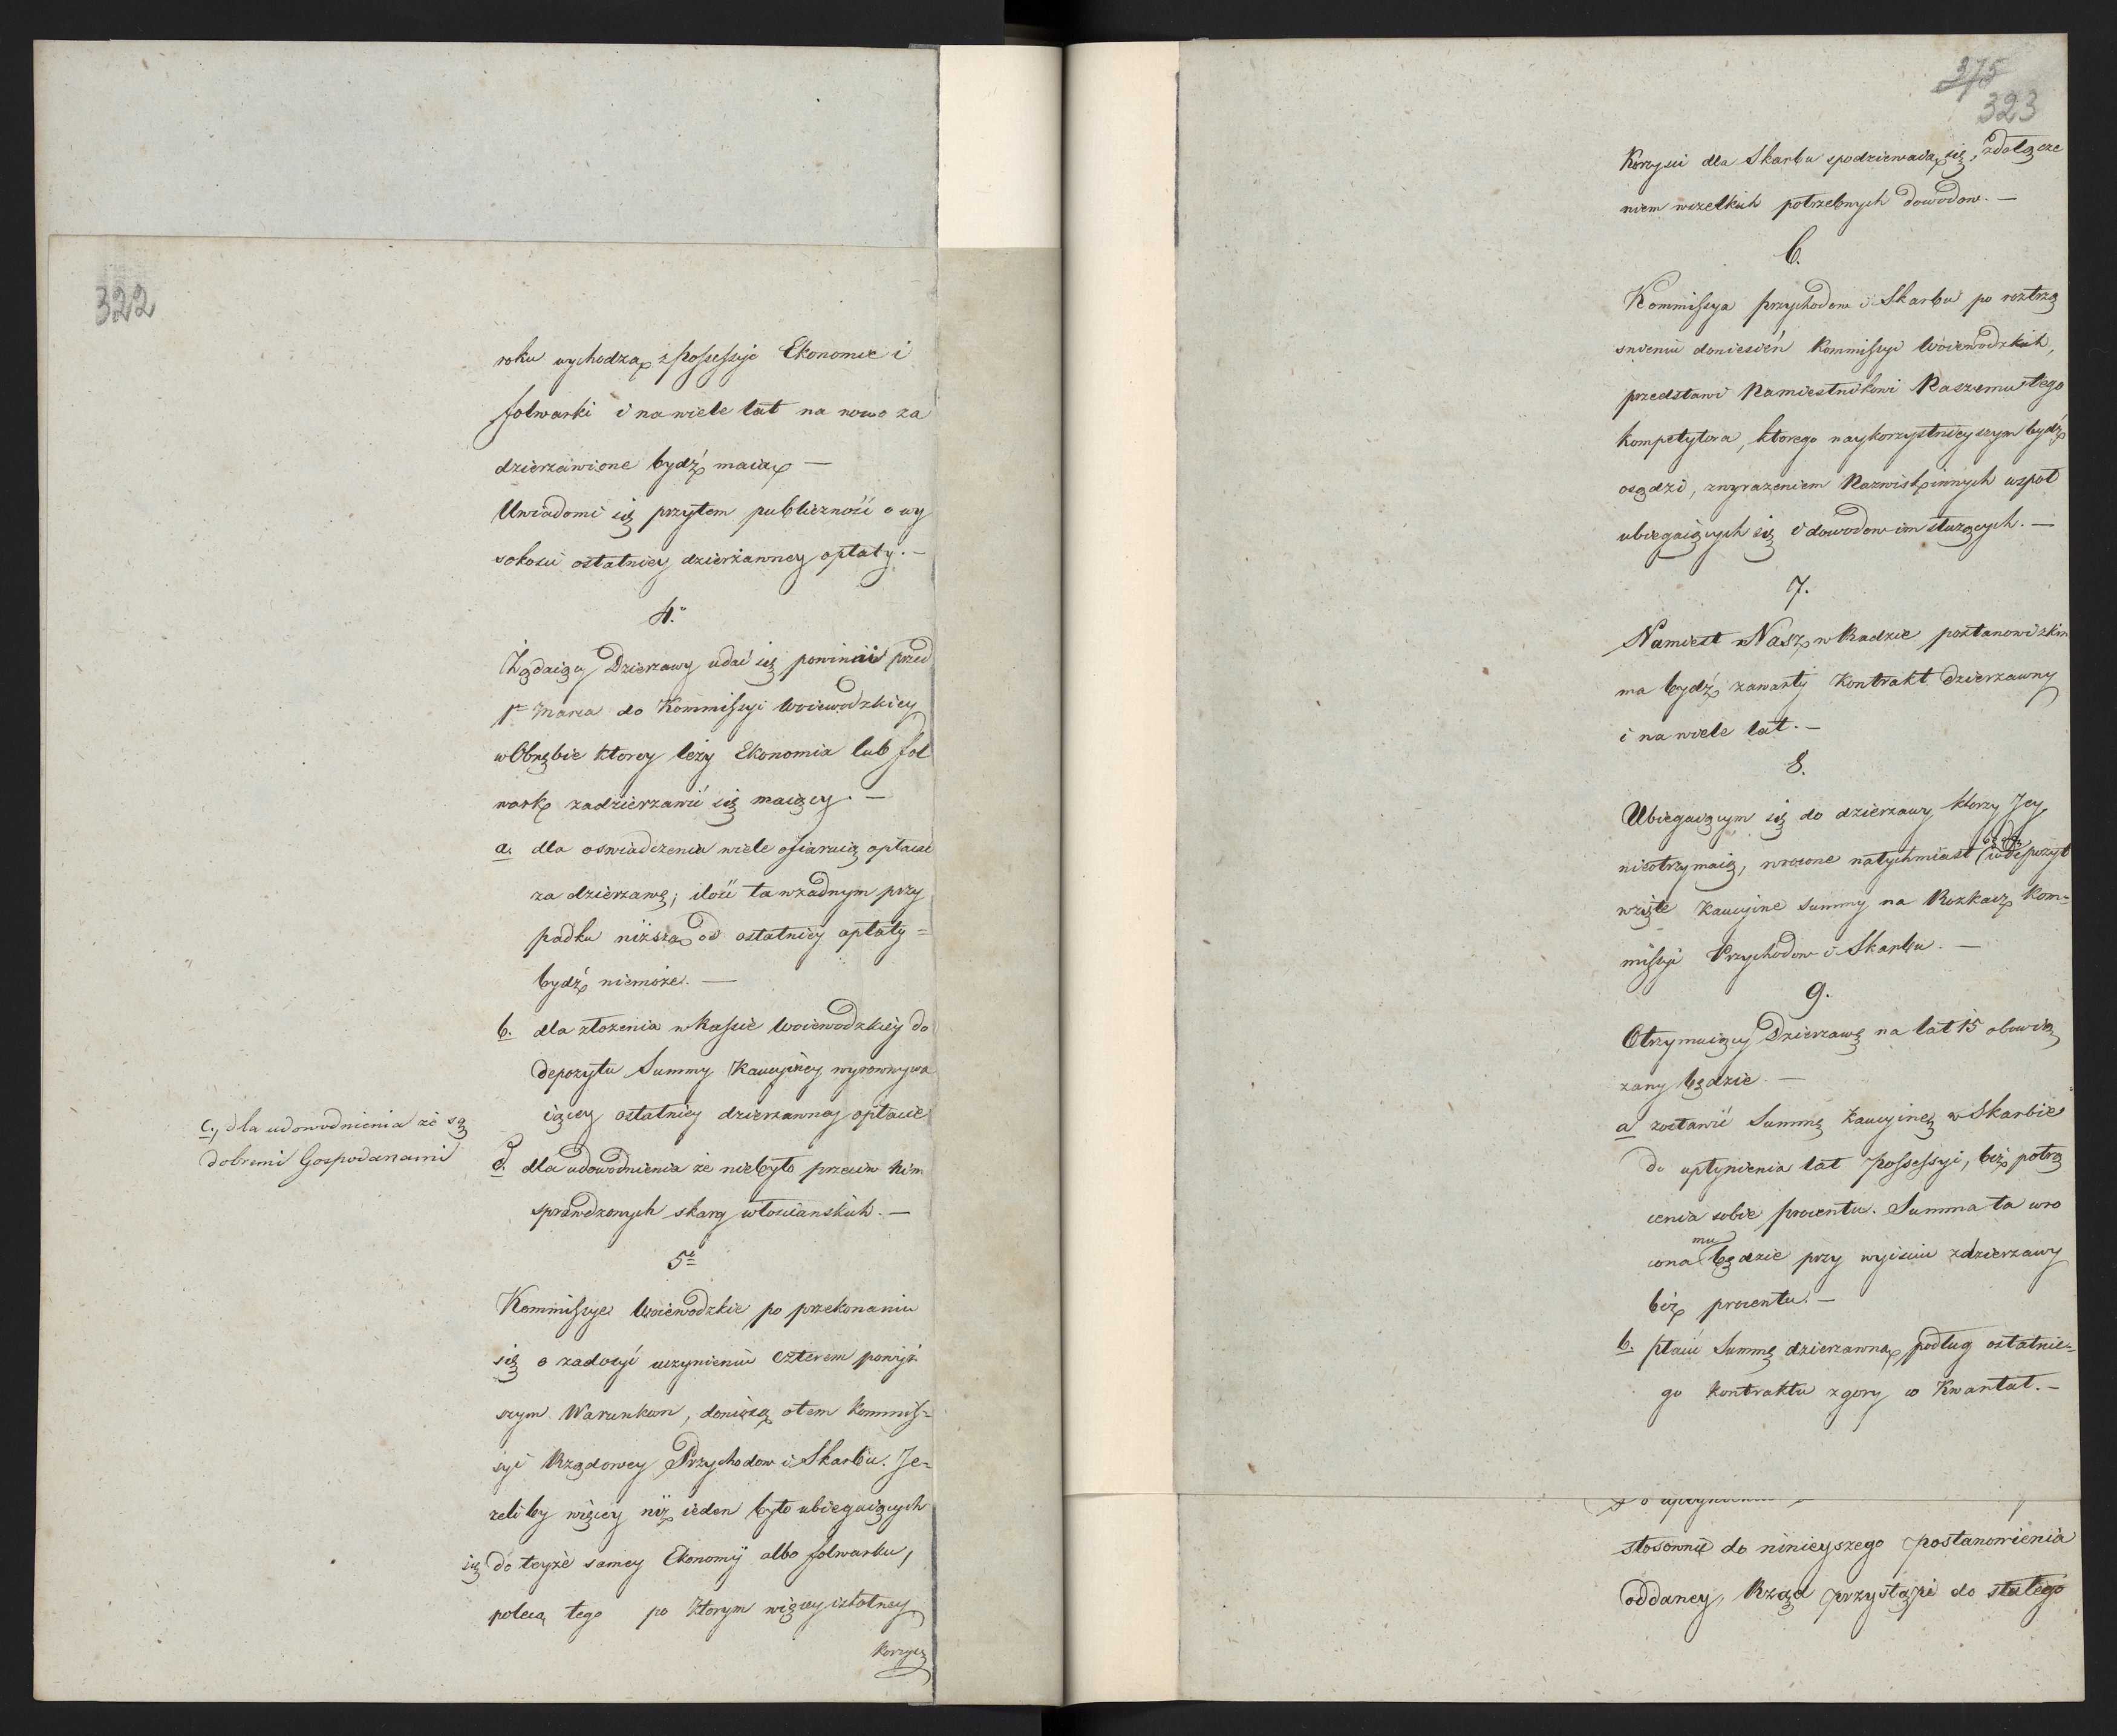 322
roku wychodzą z Possessyi Ekonomie i
folwarki i na wiele lat na nowo za
dzierzawione bydź maią —
Uwiadomi się przytem publiczność o wy
sokosci ostatniey dzierżawney opłaty. —
4.o
Żądaiący Dzierzawy udać się powinni przed
1m Marca do Kommissyi Woiewodzkiey
w Obrębie ktorey leży Ekonomia lub fol
wark zadzierzawić się maiący. —
a. dla oswiadczenia wiele ofiaruią opłacać
za dzierzawę; ilość ta w żadnym przy
padku niższą od ostatniey opłaty =
bydź niemoże. —
b. dla złożenia w Kassie Woiewodzkiey do
depozytu Summy Kaucyiney wyrownywa
iącey ostatniey dzierzawney opłacie
c., dla udowodnienia że są
dobremi Gospodarami
d. dla udowodnienia że niebyło przeciw nim
sprawdzonych skarg włosciańskich. —
5te
Kommissye Woiewodzkie po przekonaniu
się o zadosyć uczynieniu czterem powyż
szym Warunkom, doniosą otem Kommis=
syi Rządowey Przychodow i Skarbu. Je=
zeliby więcey niż ieden było ubiegaiących
się do teyże samey Ekonomÿ albo folwarku,
polecą tego po ktorym więcey istotney
korzysci
375
323
Korzysci dla Skarbu spodziewaią się, z dołącze
niem wszelkich potrzebnych dowodow. —
6.
Kommissya Przychodow i Skarbu po roztrzą
snieniu doniesień Kommissyi Woiewodzkich,
przedstawi Namiestnikowi Naszemu tego
kompetytora, ktorego naykorzystnieyszym bydź
osądzi, z wyrazeniem Nazwisk innych wspoł
ubiegaiących się i dowodow im służących. —
7.
Namiest n Nasz w Radzie postanowi z kim
ma bydź zawarty Kontrakt dzierzawny
i na wiele lat. —
8.
Ubiegaiącym się do dzierzawy ktorzy Jey
nieotrzymaią, wrocone natychmiast będą w depozyt
wzięte Kaucyine Summy na Rozkaz Kom=
missyi Przychodow i Skarbu. —
9.
Otrzymuiący Dzierzawę na lat 15 obowią
zany będzie. —
a zostawić Summę Kaucyiną w Skarbie
do upłynienia lat Possessyi, bez potrą
cenia sobie procentu. Summa ta wro
cona mu będzie przy wyisciu z dzierzawy
bez procentu. —
b. płacić Summę dzierzawną podług ostatnie=
go kontraktu z gory co Kwartał. —
stosownie do ninieyszego postanowienia
oddaney, Rząd przystąpi do stałego